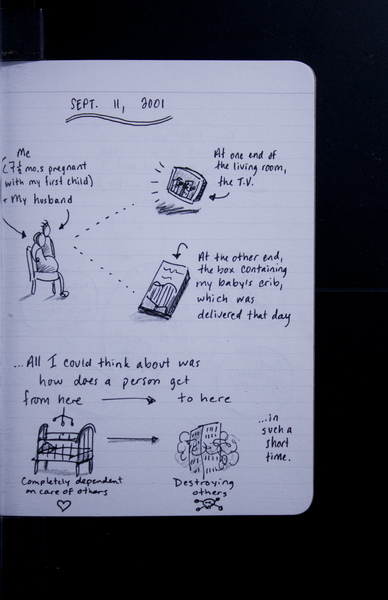 SEPT. 11, 2001
Me
(7½ mo.s pregnant
with my first child)
+ My husband
At one end of
the living room,
the T.V.
At the other end,
the box containing
my baby's crib,
which was
delivered that day
...All I could think about was
how does a person get
from here
to here
...in
such a
short
time.
Completely dependent
on care of others
Destroying
others